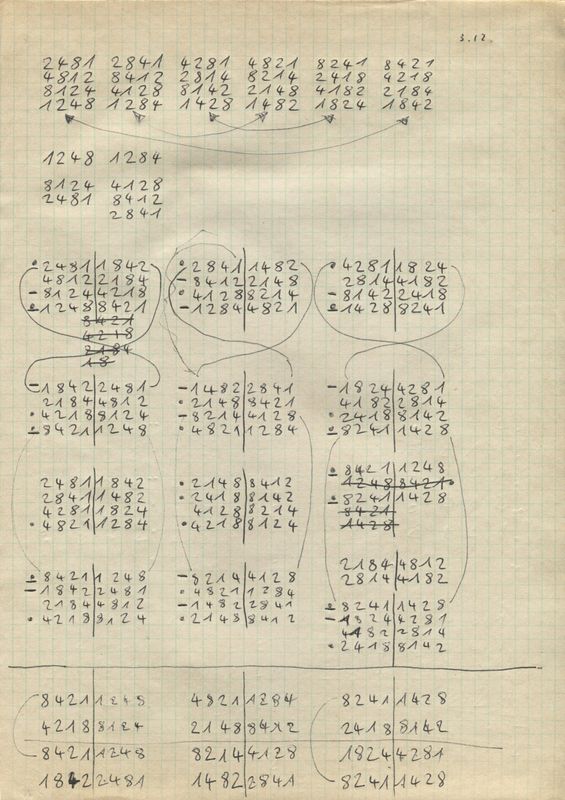 3.12.
2481 2841 4281 4821 8241 8421
4812 8412 2814 8214 2418 4218
8124 4128 8142 2148 4182 2184
1248 1284 1428 1482 1824 1842
1248 1284
8124 4128
2481 8412
2841
2481 1842 2841 1482 4281 1824
4812 2184 8412 2148 2814 4182
8124 4218 4128 8214 8142 2418
1248 8421 1284 4821 1428 8241
8421
4218
2184
18
1842 2481 1482 2841 1824 4281
2184 4812 2148 8421 4182 2814
4218 8124 8214 4128 2418 8142
8421 1248 4821 1284 8241 1428
8421 1248
1248 8421
8241 1428
8421
1428
2481 1842 2148 8412
2841 1482 2418 8142
4281 1824 4128 8214
4821 1284 4218 8124
2184 4812
2814 4182
8421 1248 8214 4128 8241 1428
1842 2481 4821 1284 1824 4281
2184 4812 1482 2841 4182 2814
4218 8124 2148 8412 2418 8142
8421 1248 4821 1284 8241 1428
4218 8124 2148 8412 2418 8142
8421 1248 8214 4128 1824 4281
1842 2481 1482 2841 8241 1428